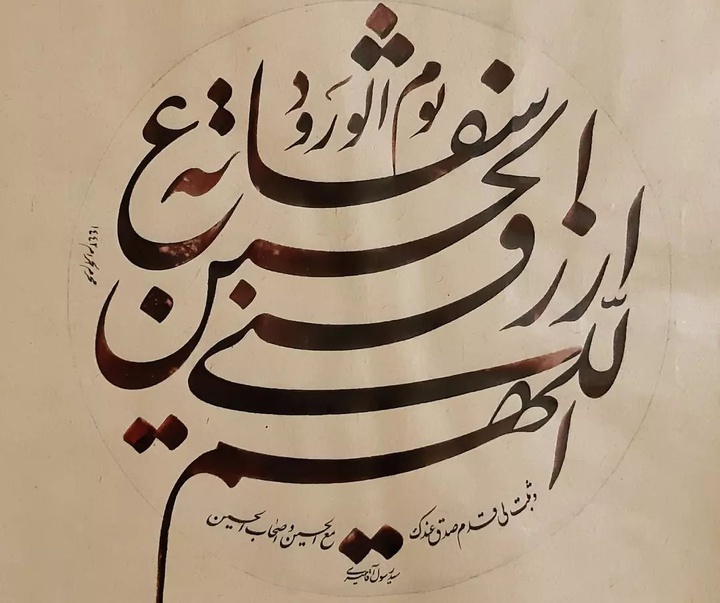 اللهم
ارزقنی
شفاعة
الحسین
یوم الورود
و ثبت لی قدم صدق عندک
مع الحسین و اصحاب الحسین
سید رسول آقامیری
محرم الحرام ۱۴۴۲